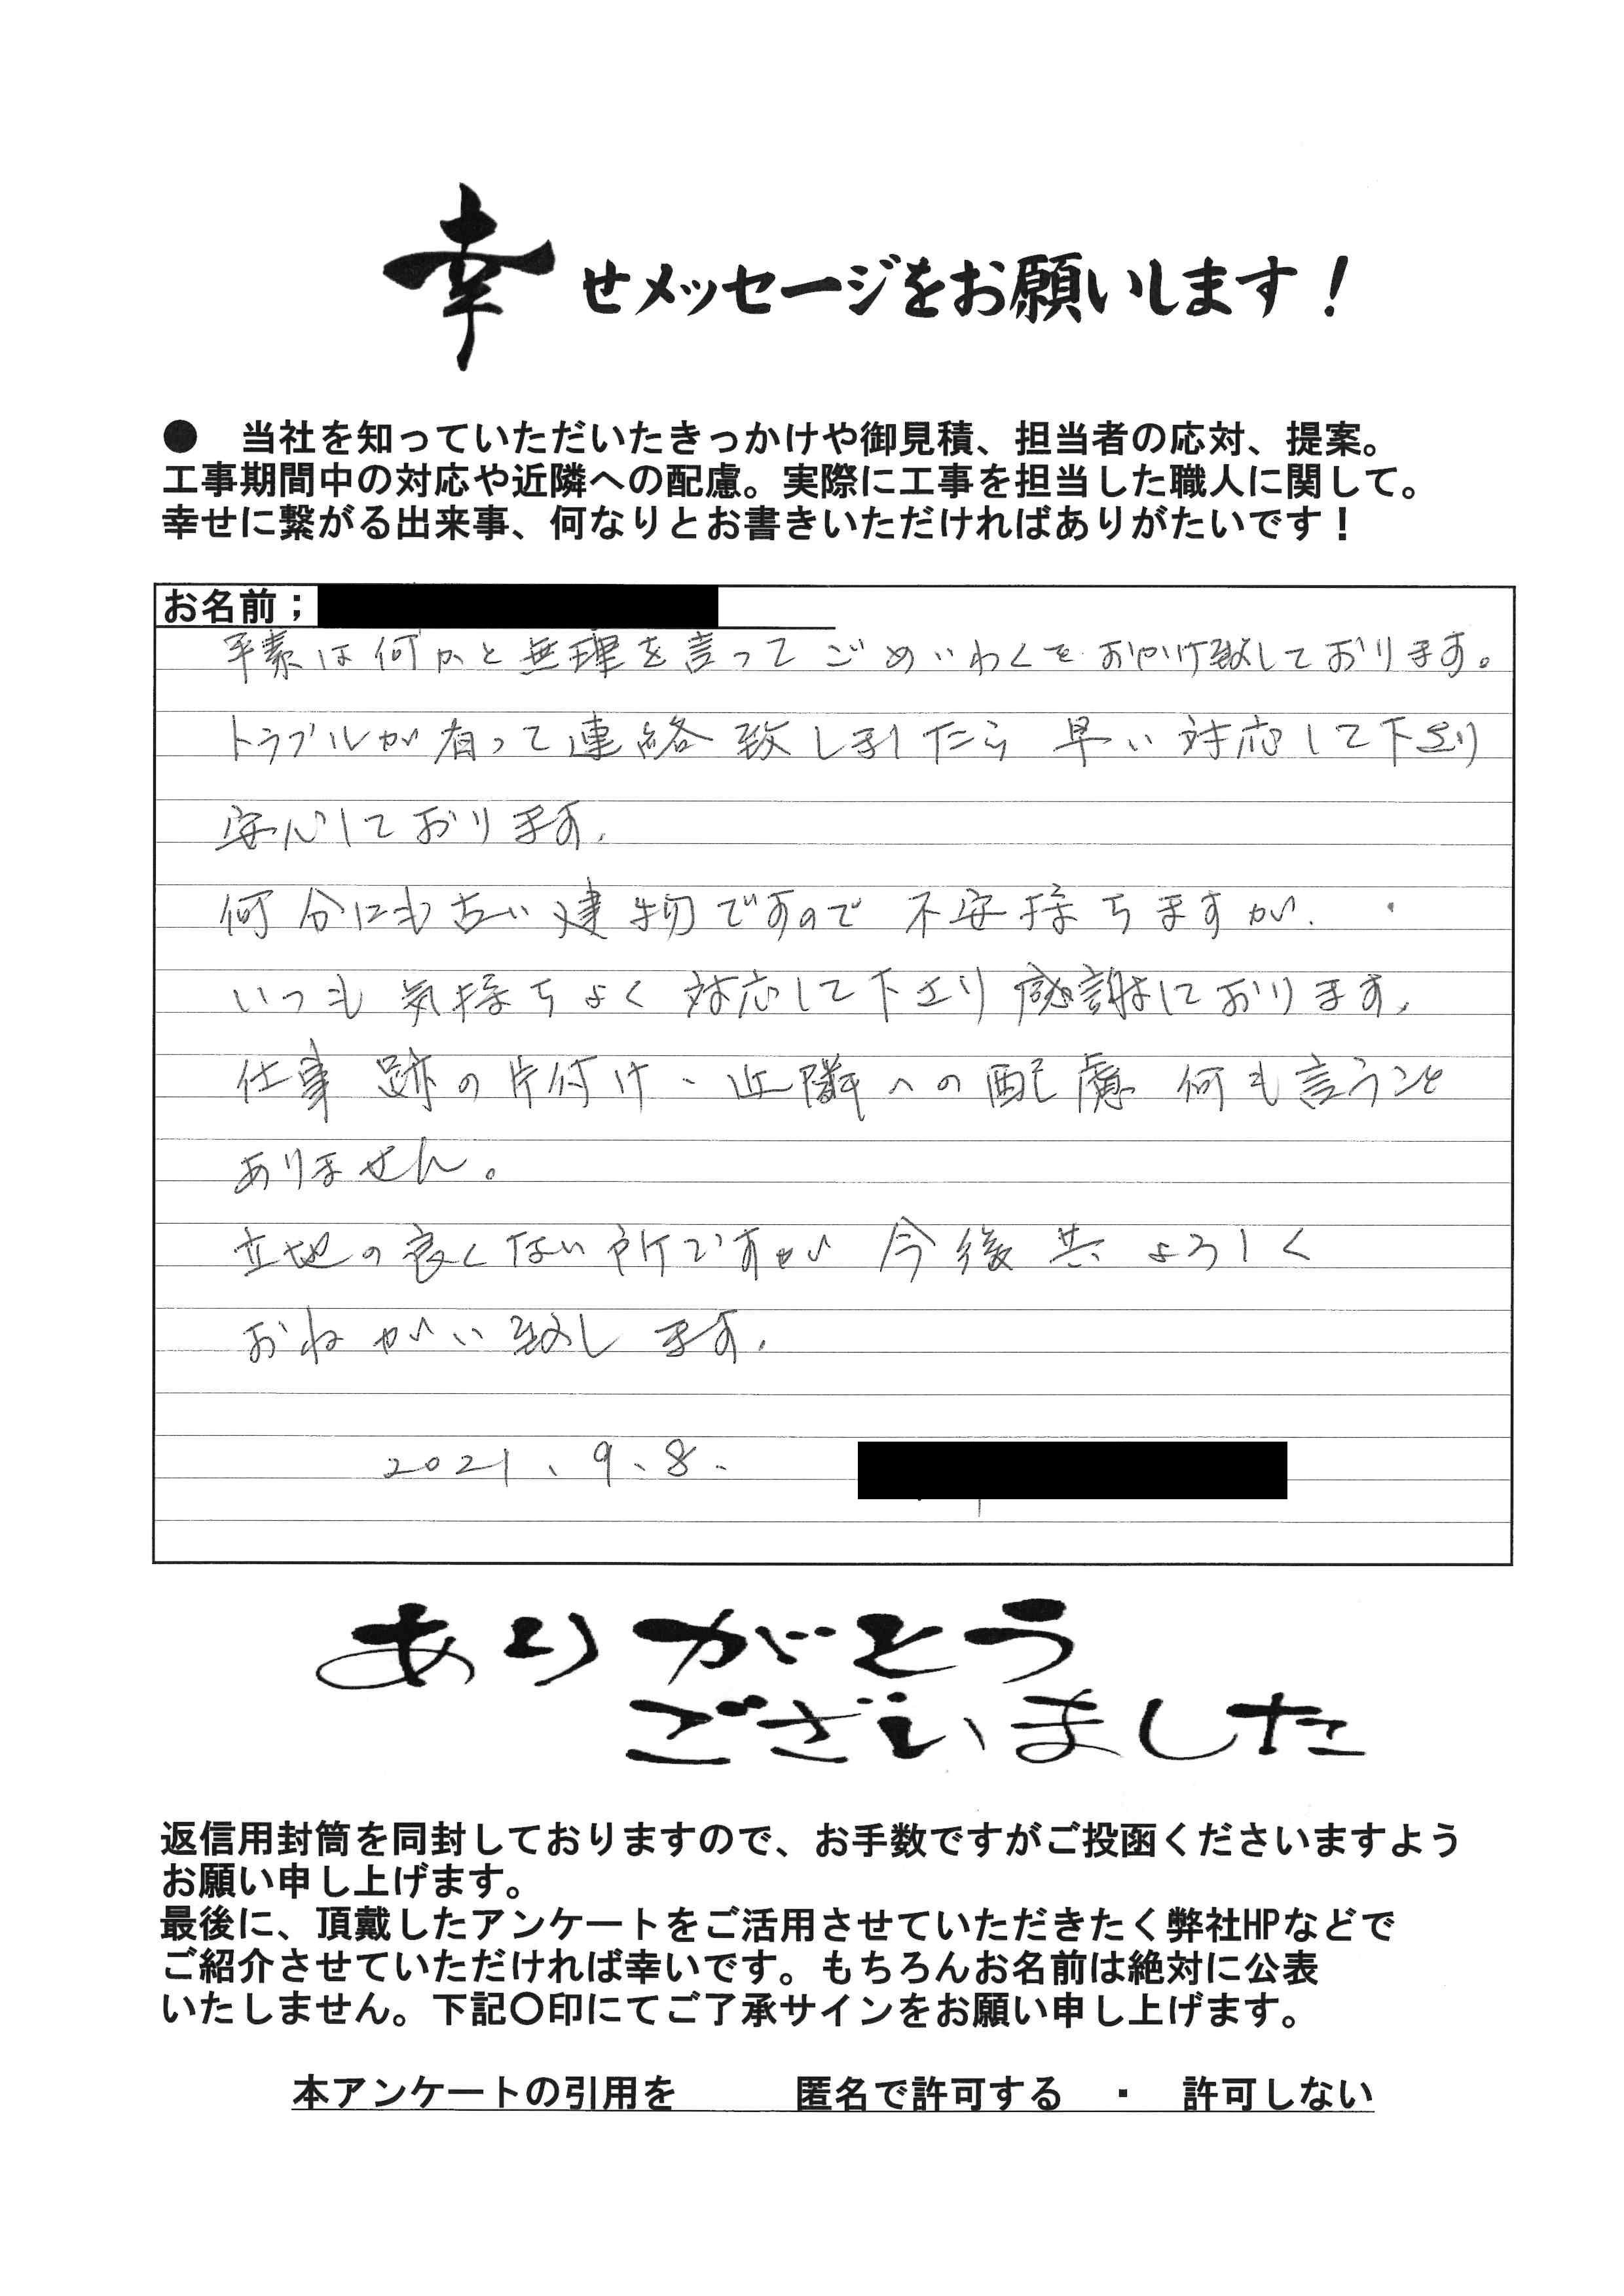 幸せメッセージをお願いします！
● 当社を知っていただいたきっかけや御見積、担当者の応対、提案。
工事期間中の対応や近隣への配慮。実際に工事を担当した職人に関して。
幸せに繋がる出来事、何なりとお書きいただければありがたいです！
お名前；
平素は何かと無理を言ってごめいわくをおかけ致しております。
トラブルが有って連絡致しましたら早い対応して下さり
安心しております.
何分にも古い建物ですので不安持ちますが.
いつも気持ちよく対応して下さり感謝しております.
仕事跡の片付け、近隣への配慮何も言うこと
ありません。
立地の良くない所ですが今後共よろしく
おねがい致します.
2021、9、8.
ありがとう
ございました
返信用封筒を同封しておりますので、お手数ですがご投函くださいますよう
お願い申し上げます。
最後に、頂戴したアンケートをご活用させていただきたく弊社HPなどで
ご紹介させていただければ幸いです。もちろんお名前は絶対に公表
いたしません。下記〇印にてご了承サインをお願い申し上げます。
本アンケートの引用を 匿名で許可する ・ 許可しない